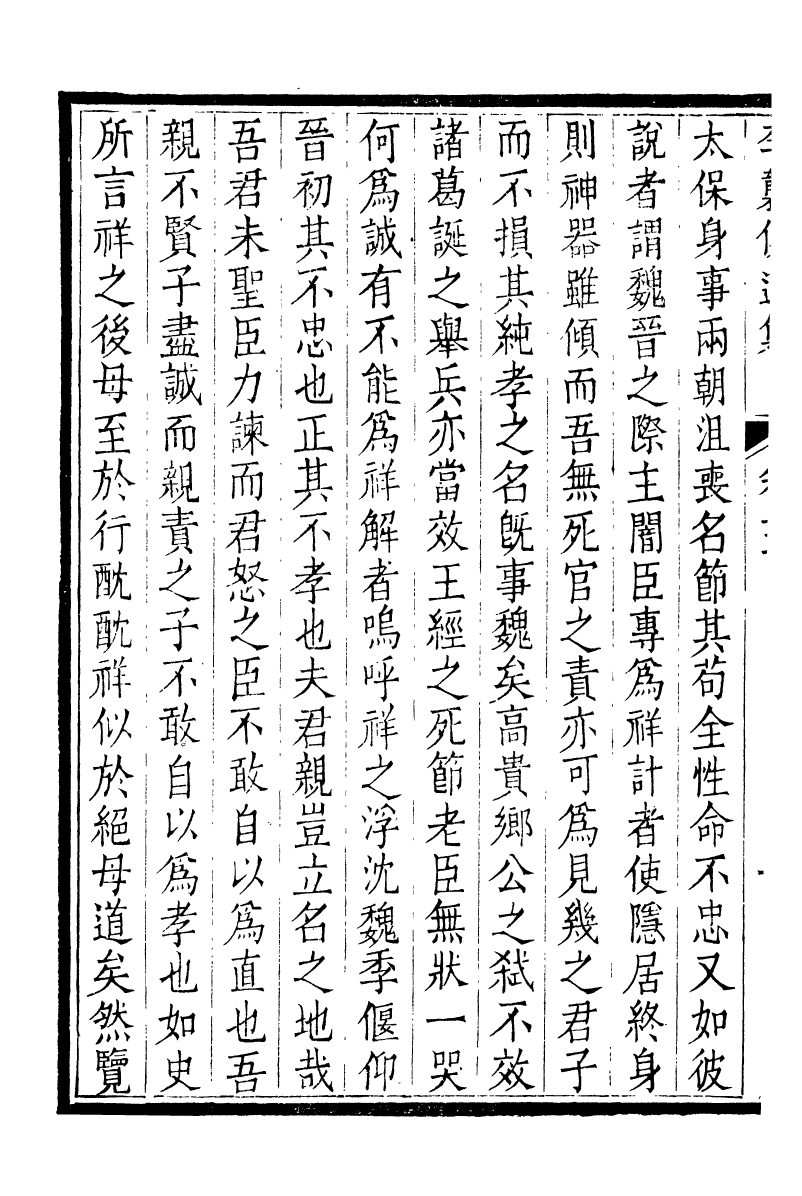 太保身事兩朝沮喪名節其苟全性命不忠又如彼
說者謂魏晉之際主闇臣專爲祥計者使隱居終身
則神器雖傾而吾無死官之責亦可爲見幾之君子
而不損其純孝之名旣事魏矣高貴鄉公之弒不效
諸葛誕之舉兵亦當效王經之死節老臣無狀一哭
何爲誠有不能爲祥解者嗚呼祥之浮沈魏季偃仰
晉初其不忠也正其不孝也夫君親豈立名之地哉
吾君未聖臣力諫而君怒之臣不敢自以爲直也吾
親不賢子盡誠而親責之子不敢自以爲孝也如史
所言祥之後母至於行酖酖祥似於絕母道矣然覽